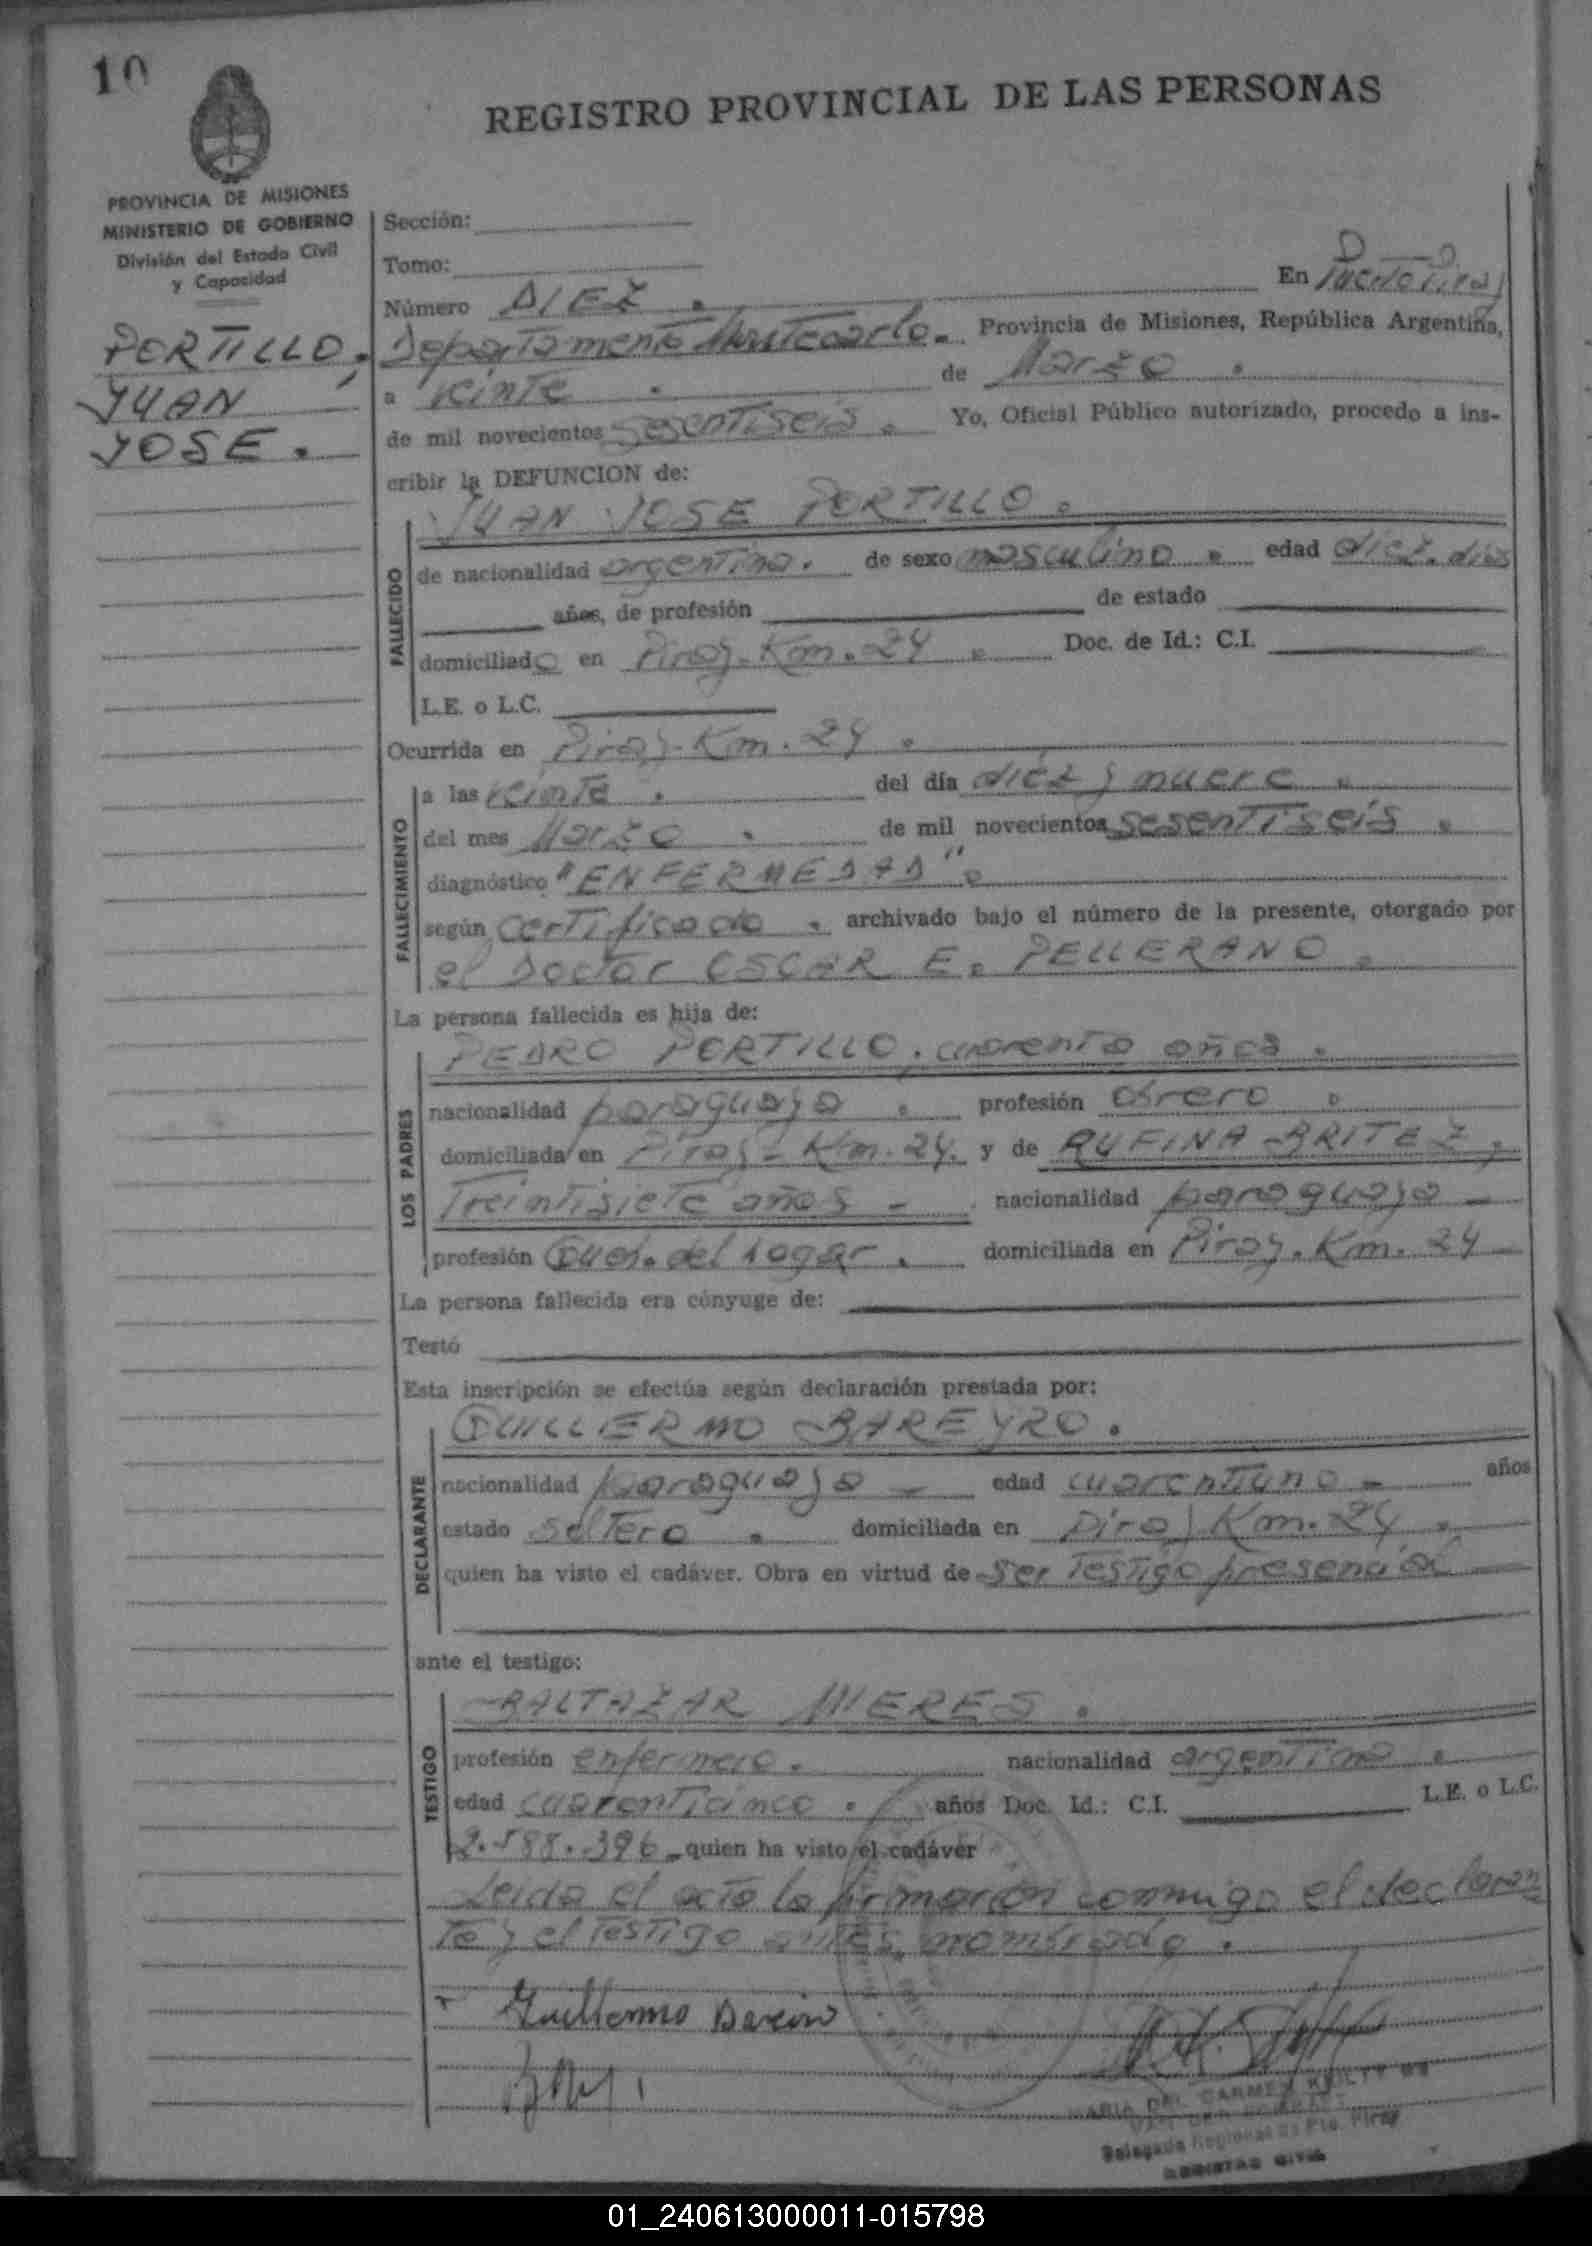 10
REGISTRO PROVINCIAL DE LAS PERSONAS
PROVINCIA DE MISIONES
MINISTERIO DE GOBIERNO
División del Estado Civil
y Capacidad
PORTILLO,
JUAN
JOSE.
Sección:
Tomo:
Número DIEZ. En Puerto Piray
Departamento Montecarlo. Provincia de Misiones, República Argentina,
a veinte. de Marzo.
de mil novecientos sesentiseis. Yo, Oficial Público autorizado, procedo a ins-
cribir la DEFUNCION de:
JUAN JOSE PORTILLO.
FALLECIDO
de nacionalidad argentina. de sexo masculino. edad diez. dias
años, de profesión de estado
domiciliado en Piray. Km. 24. Doc. de Id.: C.I.
L.E. o L.C.
Ocurrida en Piray. Km. 24.
FALLECIMIENTO
a las veinte. del día diez y nueve.
del mes Marzo. de mil novecientos sesentiseis.
diagnóstico "ENFERMEDAD".
según certificado. archivado bajo el número de la presente, otorgado por
el Doctor OSCAR E. PELLERANO.
La persona fallecida es hija de:
LOS PADRES
PEDRO PORTILLO, cuarenta años.
nacionalidad paraguaya. profesión obrero.
domiciliada en Piray - Km. 24. y de RUFINA BRITEZ,
Treintisiete años - nacionalidad paraguaya -
profesión Queh. del hogar. domiciliada en Piray. Km. 24 -
La persona fallecida era cónyuge de:
Testó
Esta inscripción se efectúa según declaración prestada por:
DECLARANTE
GUILLERMO BAREYRO.
nacionalidad paraguaya - edad cuarentiuno - años
estado soltero. domiciliada en Piray Km. 24.
quien ha visto el cadáver. Obra en virtud de ser Testigo presencial
ante el testigo:
TESTIGO
BALTAZAR MIERES.
profesión enfermero. nacionalidad argentina.
edad cuarenticinco. años Doc. Id.: C.I. L.E. o L.C.
2.588.396 - quien ha visto el cadáver
Leida el acta la firmaron conmigo el declaran
te y el Testigo antes nombrado.
Guillermo Bareiro
MARIA DEL CARMEN DE
Delegada Regional de Pto. Piray
REGISTRO CIVIL
01_240613000011-015798